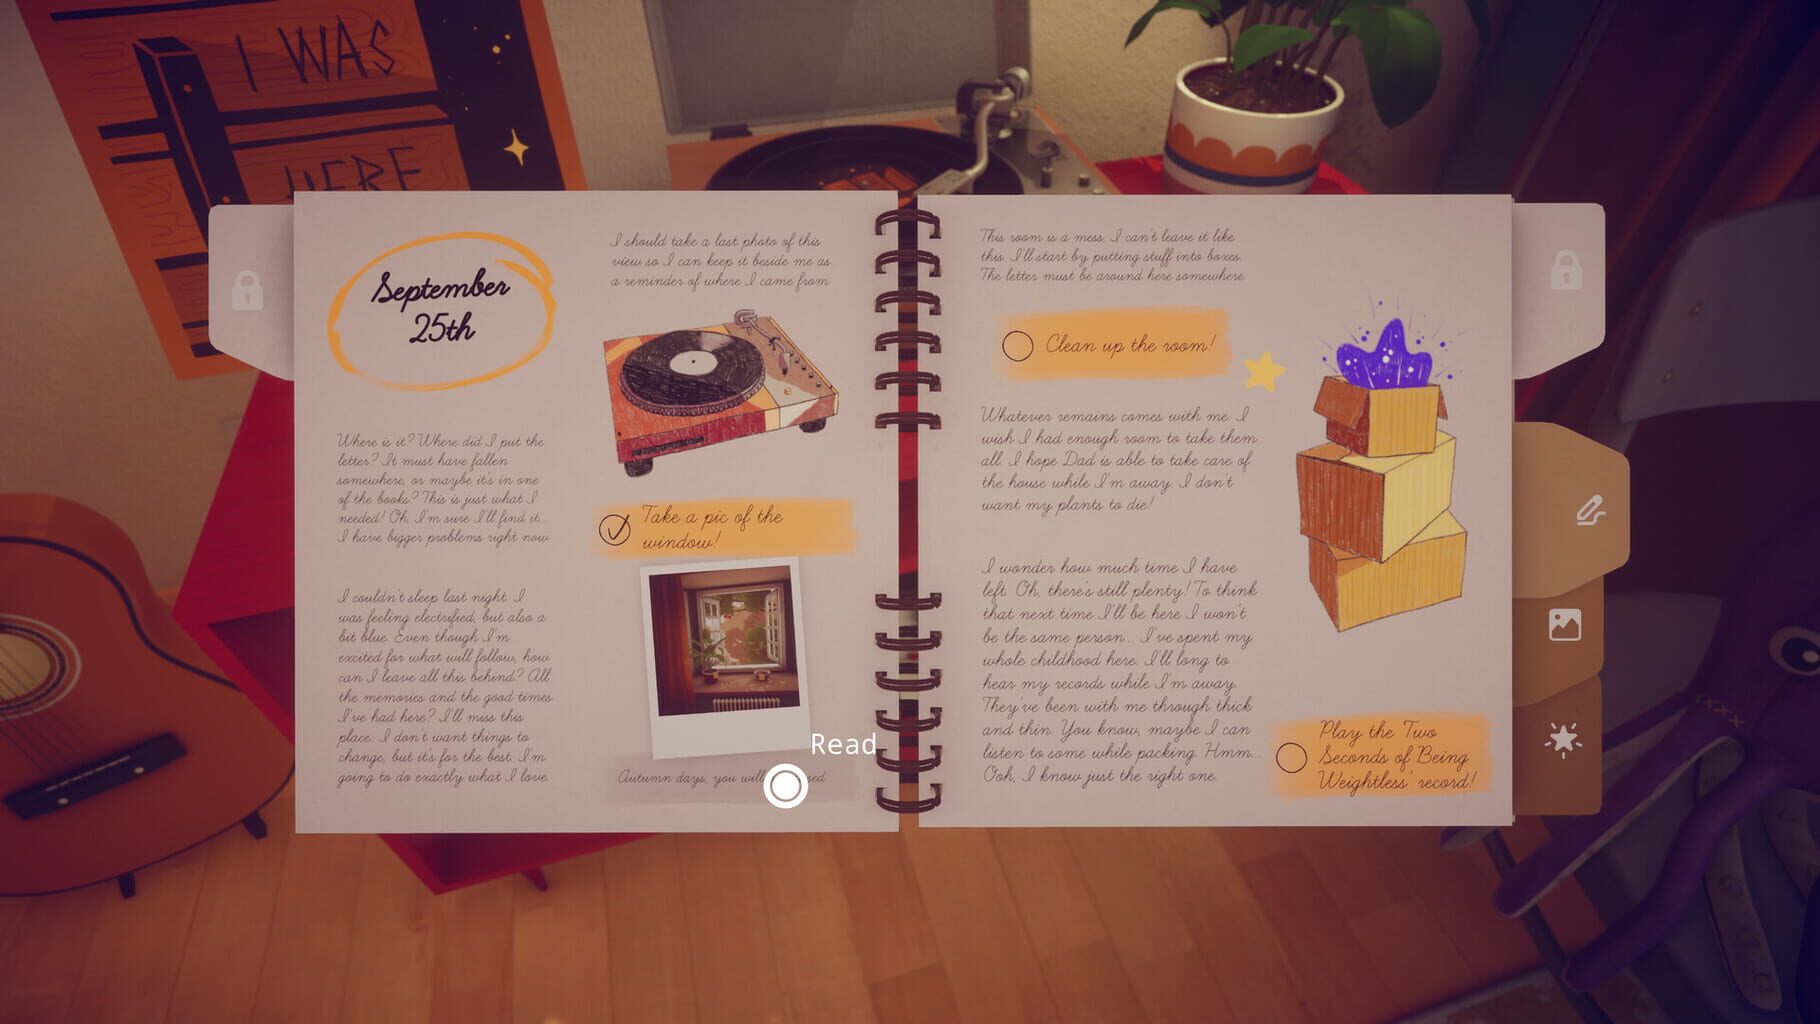 I WAS
HERE
September
25th
Where is it? Where did I put the
letter? It must have fallen
somewhere, or maybe it's in one
of the books? This is just what I
needed! Oh, I'm sure I'll find it...
I have bigger problems right now.
I couldn't sleep last night. I
was feeling electrified, but also a
bit blue. Even though I'm
excited for what will follow, how
can I leave all this behind? All
the memories and the good times
I've had here? I'll miss this
place... I don't want things to
change, but it's for the best. I'm
going to do exactly what I love.
I should take a last photo of this
view so I can keep it beside me as
a reminder of where I came from.
Take a pic of the
window!
Read
Autumn days, you will
This room is a mess, I can't leave it like
this. I'll start by putting stuff into boxes.
The letter must be around here somewhere.
Clean up the room!
Whatever remains comes with me. I
wish I had enough room to take them
all. I hope Dad is able to take care of
the house while I'm away. I don't
want my plants to die!
I wonder how much time I have
left. Oh, there's still plenty! To think
that next time I'll be here I won't
be the same person... I've spent my
whole childhood here. I'll long to
hear my records while I'm away.
They've been with me through thick
and thin. You know, maybe I can
listen to some while packing. Hmm...
Ooh, I know just the right one.
Play the 'Two
Seconds of Being
Weightless' record!